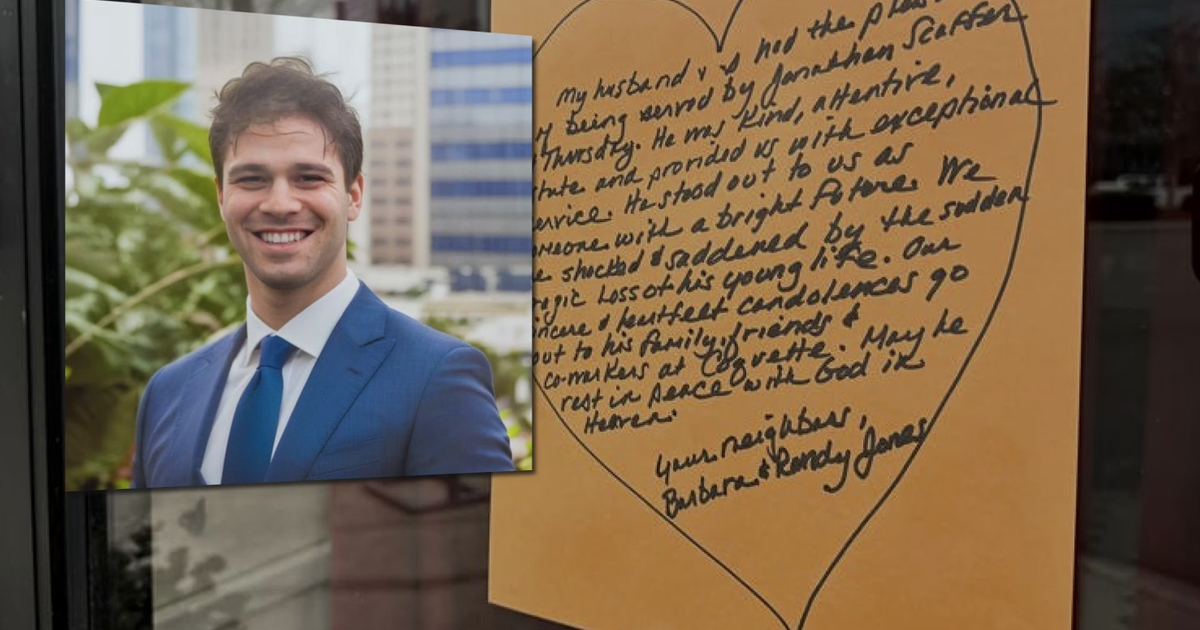 My husband & I had the pleas
y being served by Jonathan Scaffer
Thursday. He was kind, attentive,
tute and provided us with exceptional
ervice. He stood out to us as
omeone with a bright future. We
e shocked & saddened by the sudden
ragic loss of his young life. Our
incere & heartfelt condolences go
out to his family, friends &
co-workers at Coquette. May he
rest in peace with God in
Heaven.
Your neighbors,
Barbara & Randy Jones